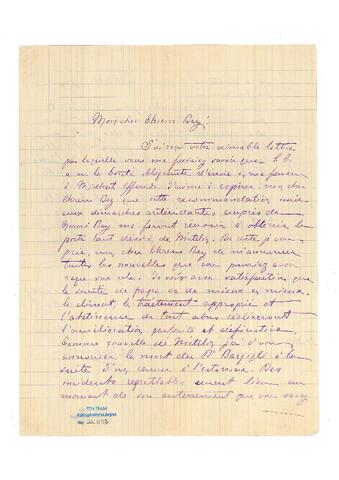 Mon cher Ekrem Bey,
J'ai reçu votre aimable lettre
par laquelle vous me faisiez savoir que S. E.
a eu la bonté obligeante d'écrire en ma faveur
à Midhat Effendi. J'aime à espérer, mon cher
Ekrem Bey que cette recommandation
aux démarches auprès de
Bey me feront réussir à obtenir le
poste tant désiré de Mételin. De reste je vous
prie, mon cher Ekrem Bey de m'annoncer
toutes les nouvelles que vous pourriez avoir
reçu sur cela. Je vois avec satisfaction que
la santé de papa va de mieux en mieux.
le climat, le traitement approprié et
l'abstinence de tout abus
l'amélioration parfaite et définitive.
Comme nouvelle de Mételin j'ai à vous
annoncer la mort du Dr à la
suite d'un cancer à l'estomac. Des
incidents regrettables eurent lieu au
moment de son enterrement que vous